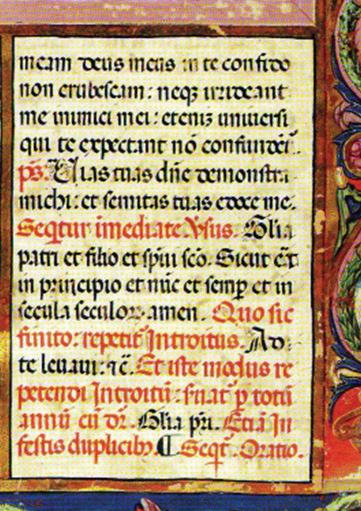 meam deus meus in te confido
non erubescam: neq; irrideant
me inimici mei: etenim universi
qui te expectant nō confundēt.
ps. Uias tuas dñe demonstra
michi: et semitas tuas edoce me.
Seqtur imediate Vsus. Glia
patri et filio et spūi sco. Sicut erat
in principio et nūc et semp et in
secula seculor. amen. Quo sic
finito: repetit Introitus. Ad
te levavi: ⁊ c̄. Et iste modus re
petendi Introitū: suat p totū
annū cū dr. Glia pri. Etiā In
festis duplicib; ¶ Seqt. Oratio.